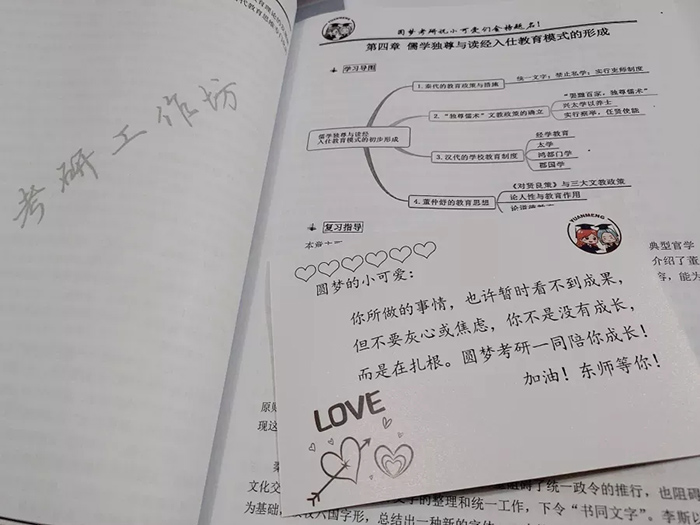 考研工作坊
圆梦考研祝小可爱们金榜题名!
第四章 儒学独尊与读经入仕教育模式的形成
学习导图
儒学独尊与读经
入仕教育模式的初步形成
1.秦代的教育政策与措施
统一文字;禁止私学;实行吏师制度
2.“独尊儒术”文教政策的确立
“罢黜百家,独尊儒术”
兴太学以养士
实行察举,任贤使能
3.汉代的学校教育制度
经学教育
太学
鸿都门学
郡国学
4.董仲舒的教育思想
《对贤良策》与三大文教政策
论人性与教育作用
复习指导
YUANMENG
圆梦的小可爱:
你所做的事情,也许暂时看不到成果,
但不要灰心或焦虑,你不是没有成长,
而是在扎根。圆梦考研一同陪你成长!
加油!东师等你!
LOVE
典型官学
介绍了董
容,能为
原则
现这
文化交
阻碍了统一政令的推行,也阻碍
为基础,
六国字形,总结出一种新的字体
字的整理和统一工作,下令“书同文字”。李斯以